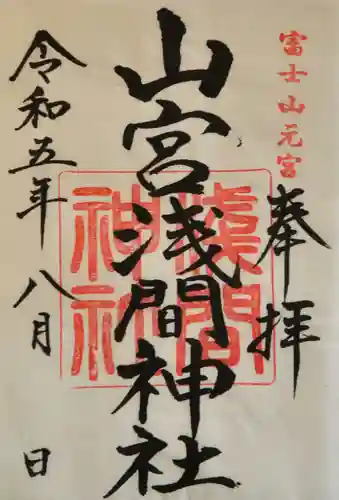 富士山元宮
奉拝
山宮浅間神社
浅間神社
令和五年八月 日